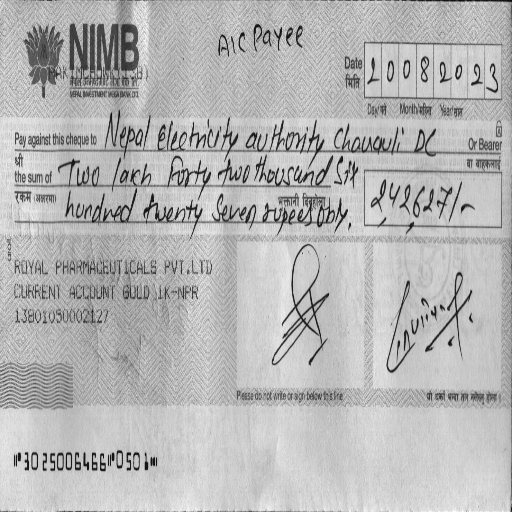 NIMB
NEPAL INVESTMENT MEGA BANK LTD.
A/C Payee
Date
मिति
20082023
Day/गते Month/महिना Year/साल
Pay against this cheque to Nepal Electricity authority Chauauli DC Or Bearer
श्री वा वाहकलाई
the sum of Two lakh forty two thousand Six
रकम (अक्षरमा) hundred twenty Seven rupees only.
242627/-
ROYAL PHARMACEUTICALS PVT.LTD
CURRENT ACCOUNT GOLD 1K-NPR
13801050002127
Please do not write or sign below this line
⑈3025006466⑈0501⑈